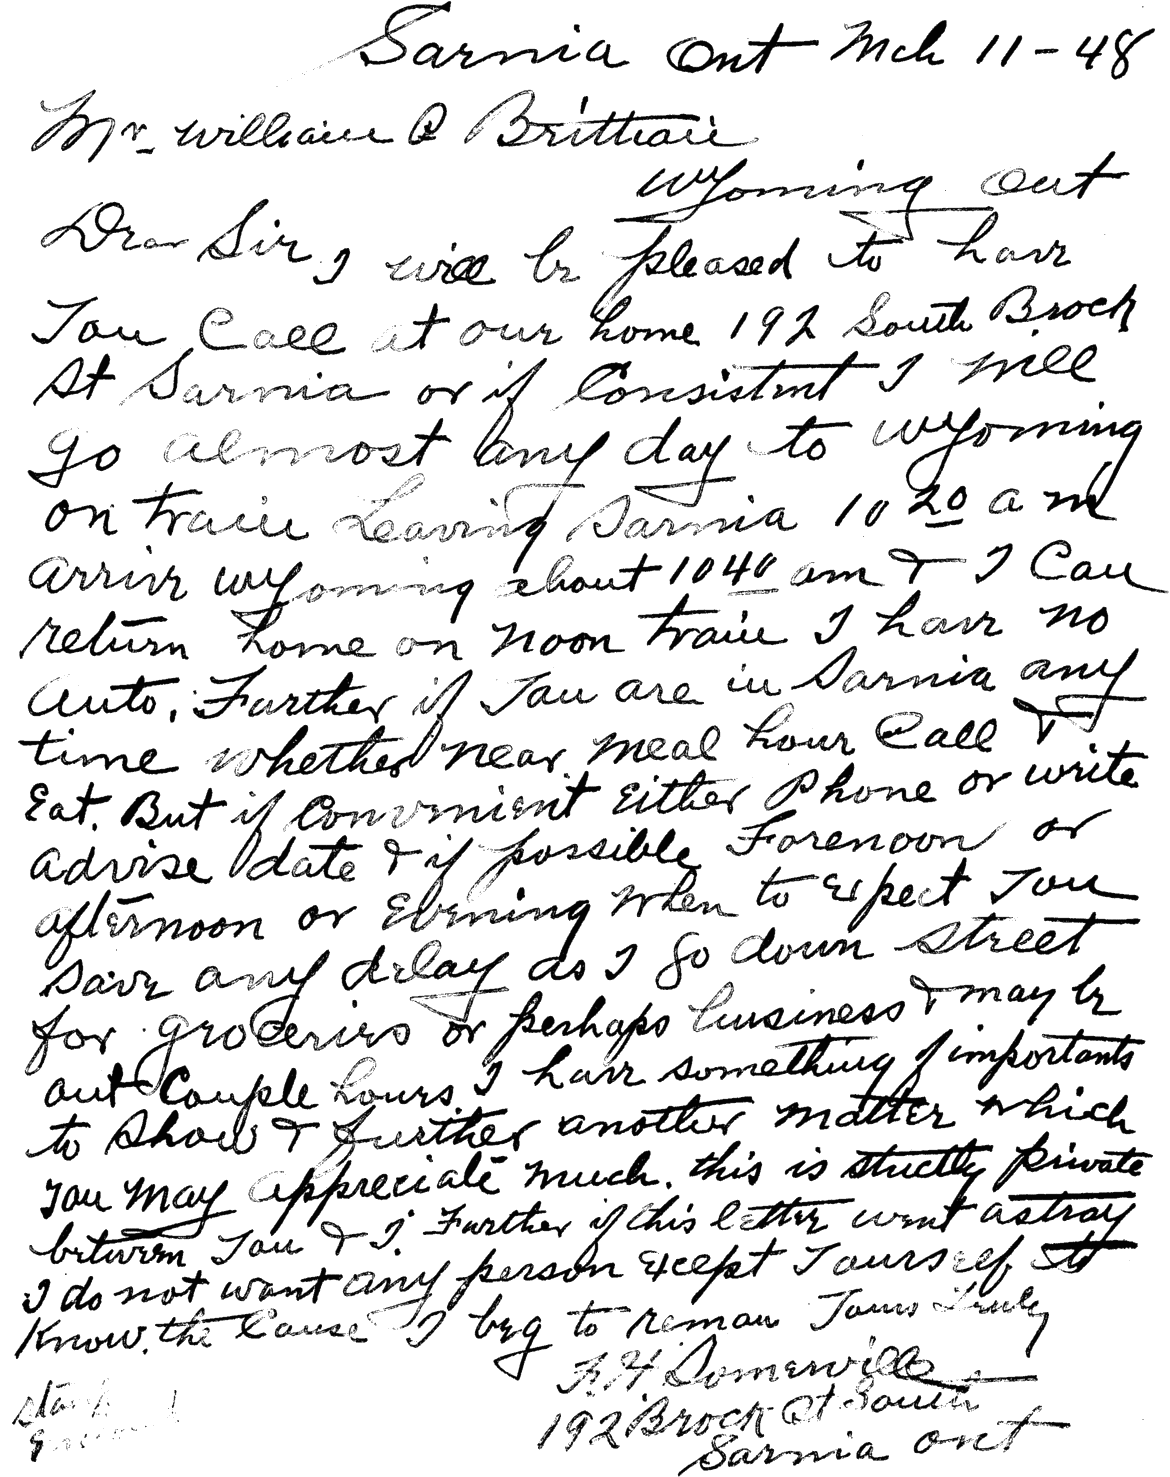 Sarnia Ont Mch 11-48
Mr. William C Brittain
Wyoming Ont
Dear Sir, I will be pleased to have
You Call at our home 192 South Brock
St Sarnia or if Consistent I will
go almost any day to Wyoming
on train Leaving Sarnia 10 20 a m
arrive Wyoming about 10 40 am & I Can
return home on Noon train I have no
auto. Further if You are in Sarnia any
time whether near meal hour Call &
Eat. But if Convenient Either Phone or write
advise date & if possible Forenoon or
afternoon or Evening when to Expect You
save any delay as I go down street
for groceries or perhaps business & may be
out Couple hours. I have something of importants
to show & further another matter which
You may appreciate much. this is strictly private
between You & I. Further if this letter went astray
I do not want any person Except Yourself to
Know the Cause I beg to remain Yours Truly
F. H Somerville
192 Brock St South
Sarnia Ont